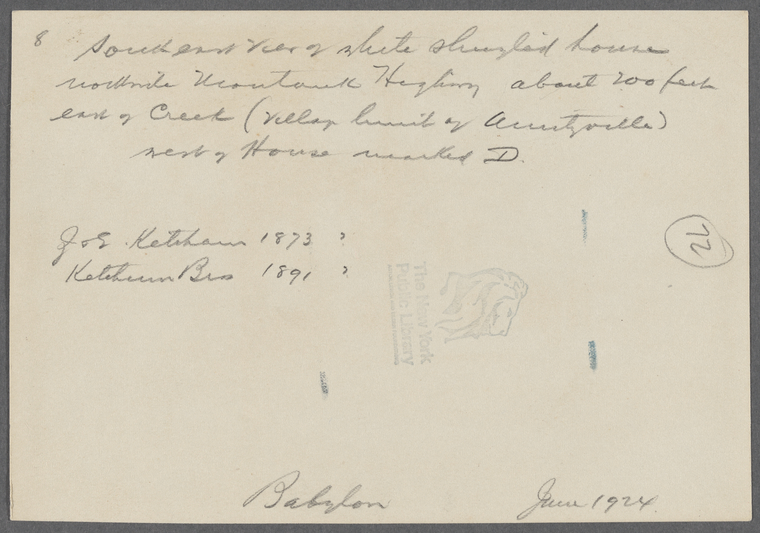 8 Southeast view of white shingled house
northside Montauk Highway about 200 feet
east of Creek (Village limit of Amityville)
west of House marked D.
J & E. Ketcham 1873 ?
Ketcham Bros 1891 ?
22
The New York
Public Library
Babylon June 1924